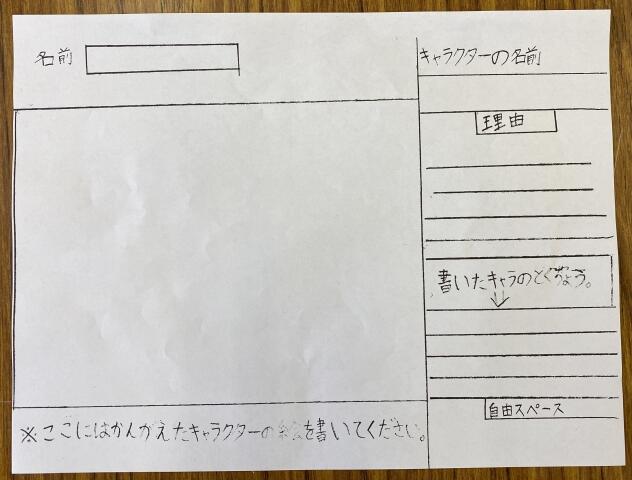 名前
キャラクターの名前
理由
書いたキャラのとくちょう。
自由スペース
※ここにはかんがえたキャラクターの絵を書いてください。